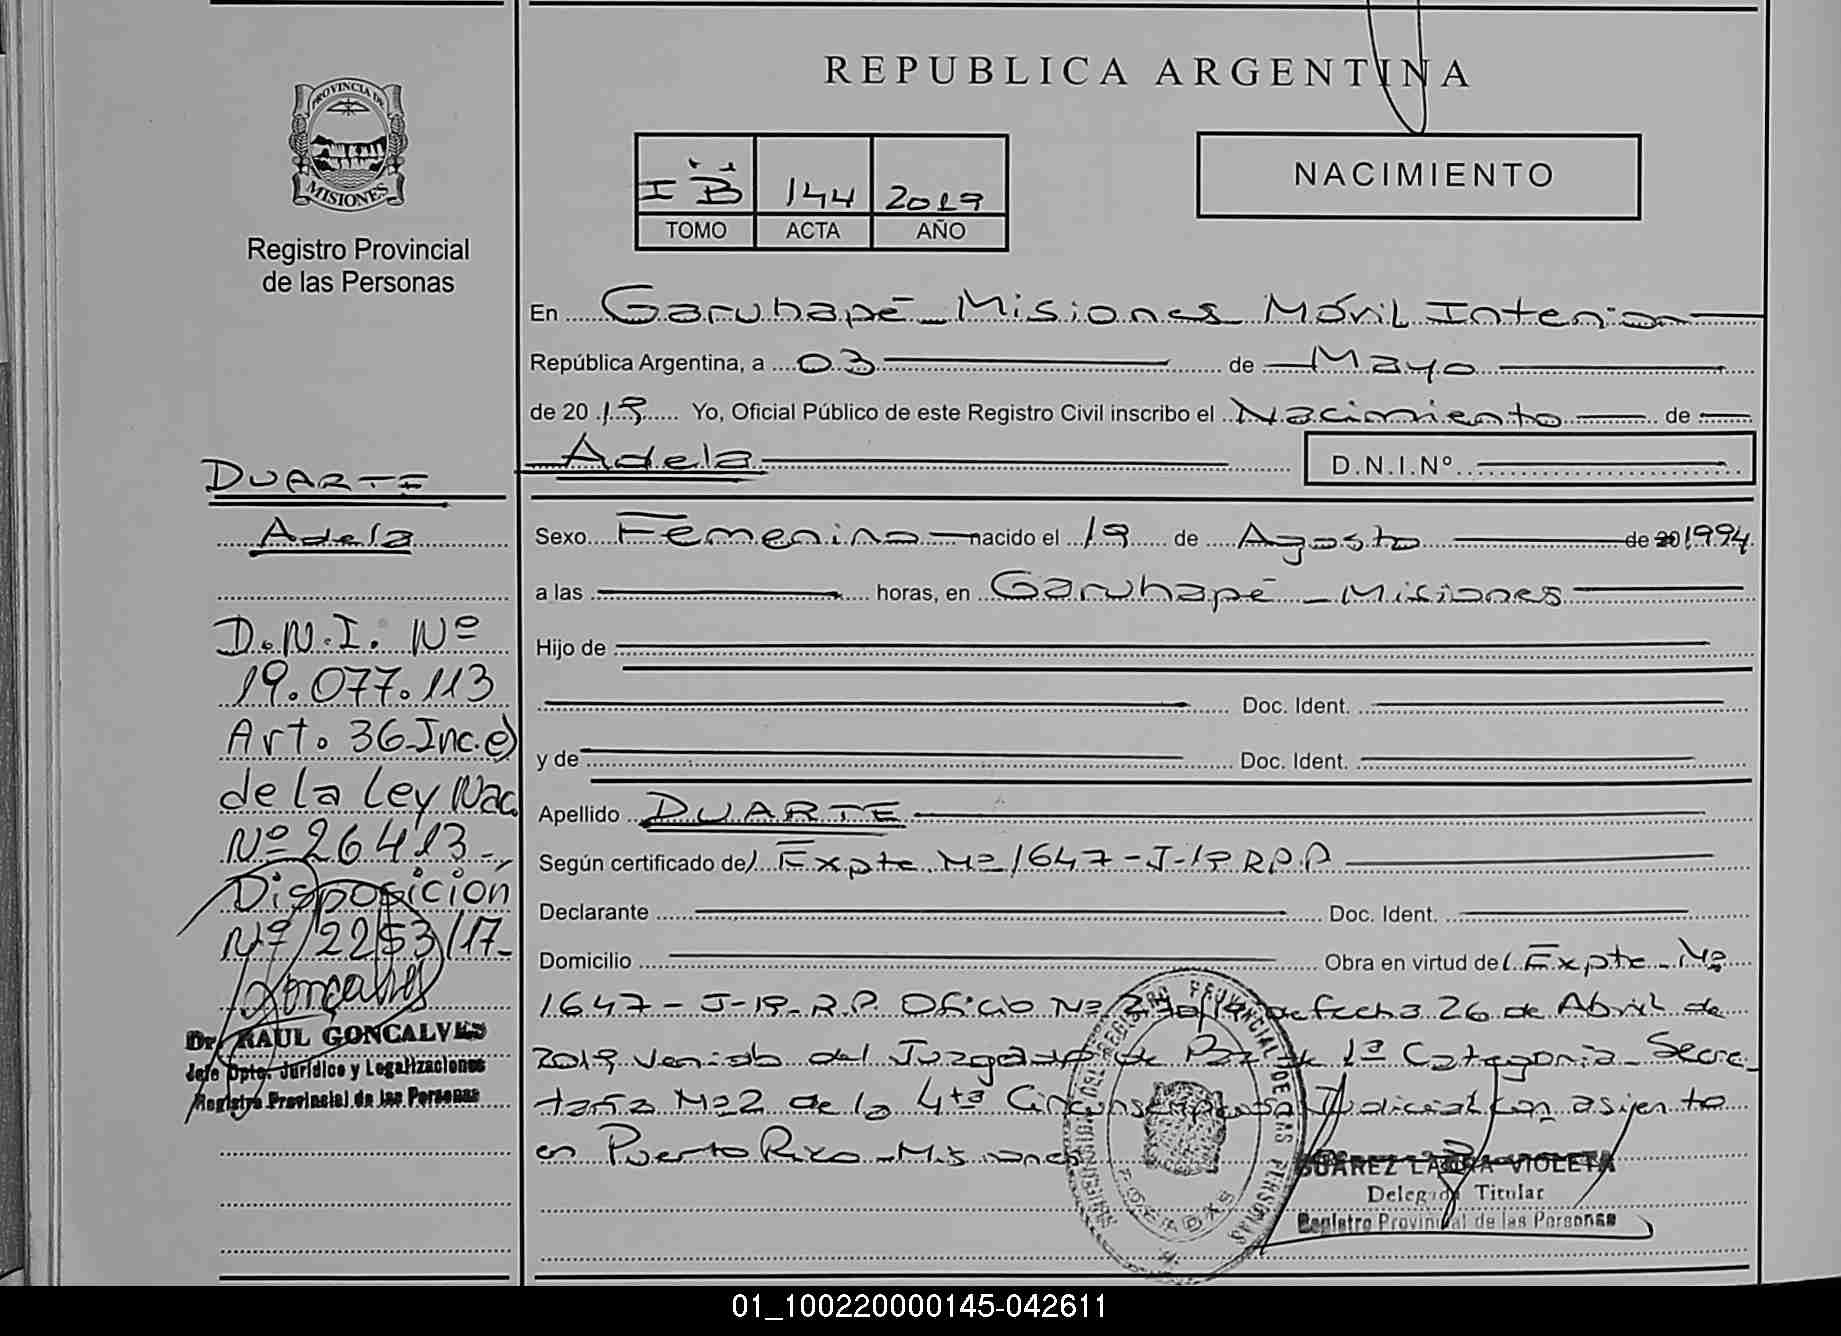 REPUBLICA ARGENTINA
PROVINCIA DE
MISIONES
Registro Provincial
de las Personas
NACIMIENTO
I B 144 2019
TOMO ACTA AÑO
En Garuhapé - Misiones Móvil Interior
República Argentina, a 03 de Mayo
de 2019 Yo, Oficial Público de este Registro Civil inscribo el Nacimiento de
Adela D.N.I.Nº
DUARTE
Adela
D.N.I. Nº
19.077.113
Art. 36-Inc.e)
de la Ley Nac.
Nº 26413-,
Disposición
Nº 2253/17-
Dr. RAUL GONCALVES
Jefe Dpto. Jurídico y Legalizaciones
Registro Provincial de las Personas
Sexo Femenino nacido el 19 de Agosto de 201994
a las horas, en Garuhapé - Misiones
Hijo de
Doc. Ident.
y de Doc. Ident.
Apellido DUARTE
Según certificado de Expte. Nº 1647-J-19 R.P.P
Declarante Doc. Ident.
Domicilio Obra en virtud de Expte. Nº
1647-J-19-R.P. Oficio Nº de fecha 26 de Abril de
2019 venido del Juzgado de Paz de 1ª Categoria - Secre-
taría Nº 2 de la 4ta Circunscripción Judicial con asiento
en Puerto Rico - Misiones
REGISTRO PROVINCIAL DE LAS PERSONAS
POSADAS
SUAREZ LAURA VIOLETA
Delegada Titular
Registro Provincial de las Personas
01_100220000145-042611